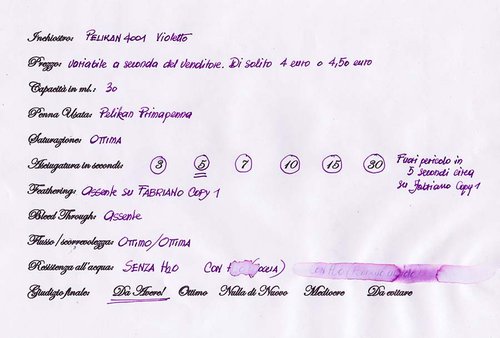 Inchiostro: PELIKAN 4001 Violetto
Prezzo: variabile a seconda del venditore. Di solito 4 euro o 4,50 euro
Capacità in ml.: 30
Penna Usata: Pelikan Primapenna
Saturazione: OTTIMA
Asciugatura in secondi: 3 5 7 10 15 30 Fuori pericolo in 5 secondi circa su Fabriano Copy 1
Feathering: Assente su FABRIANO COPY 1
Bleed Through: Assente
Flusso/scorrevolezza: OTTIMO/OTTIMA
Resistenza all'acqua: SENZA H2O CON
Giudizio finale: Da Avere! Ottimo Nulla di Nuovo Mediocre Da evitare